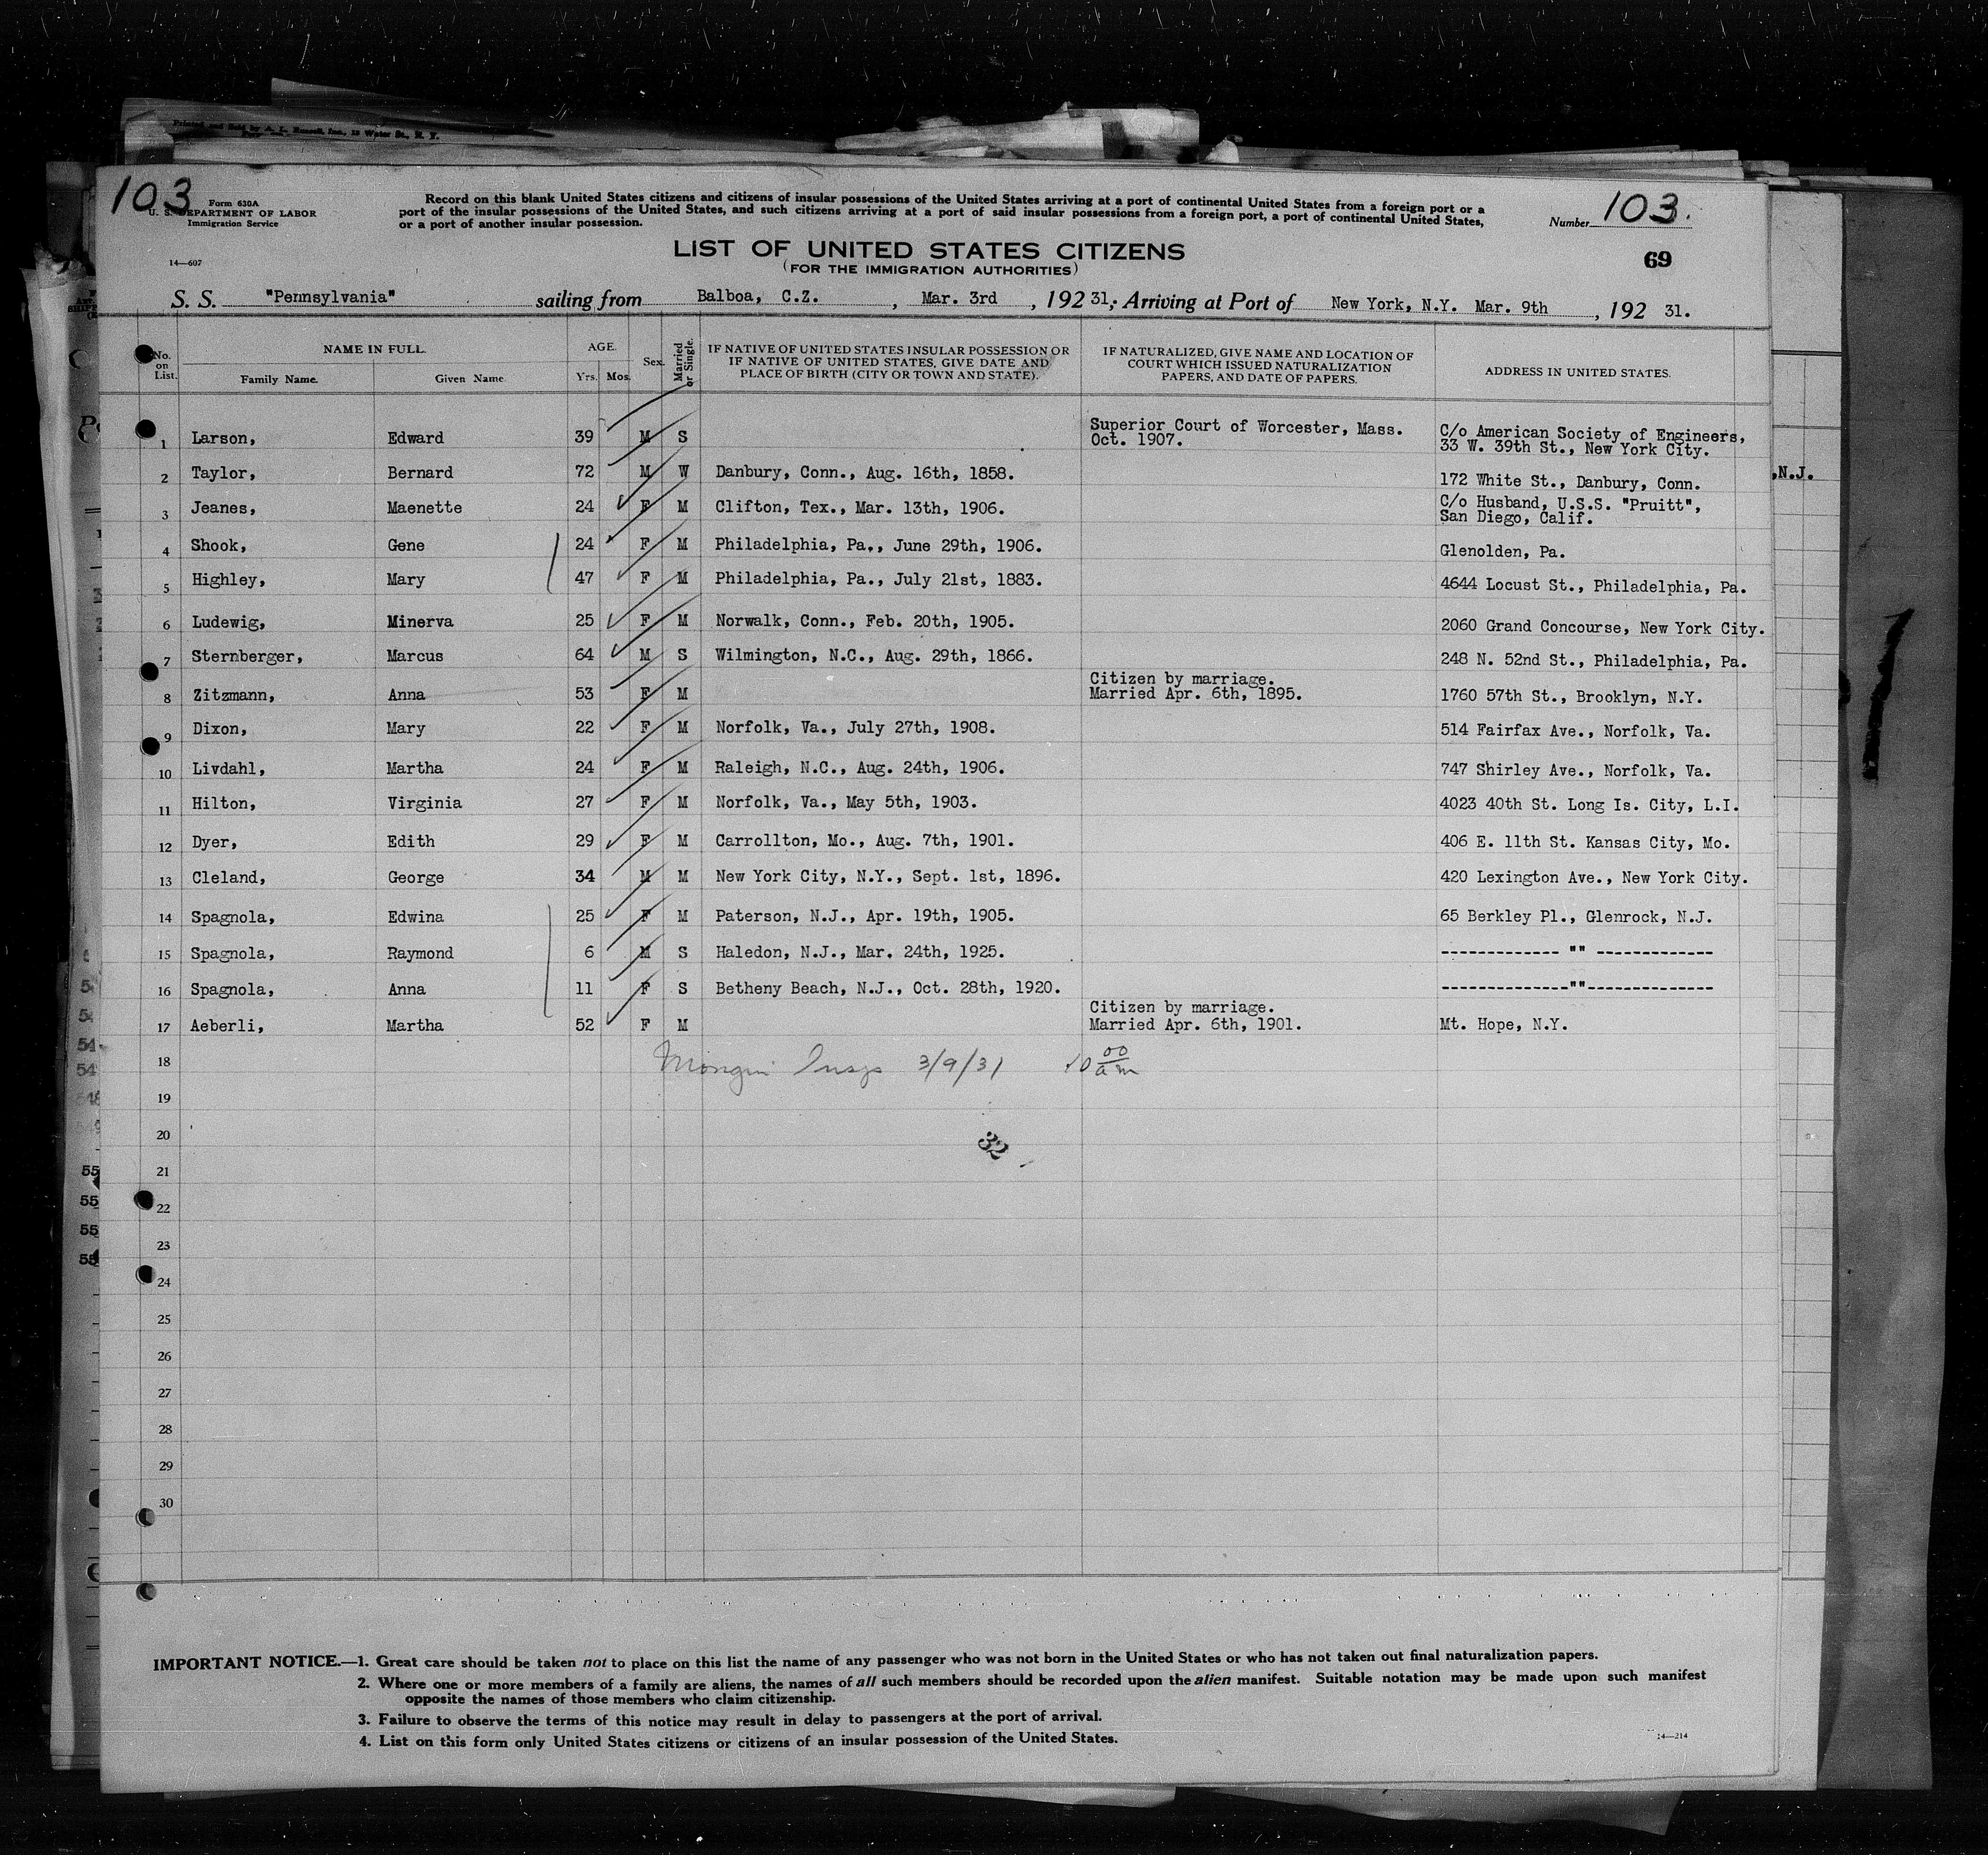 Printed and Sold by A. L. Russell, Inc., 15 Water St., N. Y.
103
Form 630A
U. S. DEPARTMENT OF LABOR
Immigration Service
14—607
Record on this blank United States citizens and citizens of insular possessions of the United States arriving at a port of continental United States from a foreign port or a
port of the insular possessions of the United States, and such citizens arriving at a port of said insular possessions from a foreign port, a port of continental United States,
or a port of another insular possession.
Number 103.
69
LIST OF UNITED STATES CITIZENS
(FOR THE IMMIGRATION AUTHORITIES)
S. S. "Pennsylvania" sailing from Balboa, C.Z. , Mar. 3rd , 192 31; Arriving at Port of New York, N.Y. Mar. 9th , 192 31.
No. on List. NAME IN FULL. Family Name. Given Name AGE. Yrs. Mos. Sex. Married or Single. IF NATIVE OF UNITED STATES INSULAR POSSESSION OR IF NATIVE OF UNITED STATES, GIVE DATE AND PLACE OF BIRTH (CITY OR TOWN AND STATE). IF NATURALIZED, GIVE NAME AND LOCATION OF COURT WHICH ISSUED NATURALIZATION PAPERS, AND DATE OF PAPERS. ADDRESS IN UNITED STATES.
1 Larson, Edward 39 M S Superior Court of Worcester, Mass. Oct. 1907. C/o American Society of Engineers, 33 W. 39th St., New York City.
2 Taylor, Bernard 72 M W Danbury, Conn., Aug. 16th, 1858. 172 White St., Danbury, Conn.
3 Jeanes, Maenette 24 F M Clifton, Tex., Mar. 13th, 1906. C/o Husband, U.S.S. "Pruitt", San Diego, Calif.
4 Shook, Gene 24 F M Philadelphia, Pa., June 29th, 1906. Glenolden, Pa.
5 Highley, Mary 47 F M Philadelphia, Pa., July 21st, 1883. 4644 Locust St., Philadelphia, Pa.
6 Ludewig, Minerva 25 F M Norwalk, Conn., Feb. 20th, 1905. 2060 Grand Concourse, New York City.
7 Sternberger, Marcus 64 M S Wilmington, N.C., Aug. 29th, 1866. 248 N. 52nd St., Philadelphia, Pa.
8 Zitzmann, Anna 53 F M Citizen by marriage. Married Apr. 6th, 1895. 1760 57th St., Brooklyn, N.Y.
9 Dixon, Mary 22 F M Norfolk, Va., July 27th, 1908. 514 Fairfax Ave., Norfolk, Va.
10 Livdahl, Martha 24 F M Raleigh, N.C., Aug. 24th, 1906. 747 Shirley Ave., Norfolk, Va.
11 Hilton, Virginia 27 F M Norfolk, Va., May 5th, 1903. 4023 40th St. Long Is. City, L.I.
12 Dyer, Edith 29 F M Carrollton, Mo., Aug. 7th, 1901. 406 E. 11th St. Kansas City, Mo.
13 Cleland, George 34 M M New York City, N.Y., Sept. 1st, 1896. 420 Lexington Ave., New York City.
14 Spagnola, Edwina 25 F M Paterson, N.J., Apr. 19th, 1905. 65 Berkley Pl., Glenrock, N.J.
15 Spagnola, Raymond 6 M S Haledon, N.J., Mar. 24th, 1925. ------------- "" -------------
16 Spagnola, Anna 11 F S Betheny Beach, N.J., Oct. 28th, 1920. --------------""--------------
17 Aeberli, Martha 52 F M Citizen by marriage. Married Apr. 6th, 1901. Mt. Hope, N.Y.
18 3/9/31 10 00 am
19
20
32
21
22
23
24
25
26
27
28
29
30
,N.J.
IMPORTANT NOTICE.—1. Great care should be taken not to place on this list the name of any passenger who was not born in the United States or who has not taken out final naturalization papers.
2. Where one or more members of a family are aliens, the names of all such members should be recorded upon the alien manifest. Suitable notation may be made upon such manifest
opposite the names of those members who claim citizenship.
3. Failure to observe the terms of this notice may result in delay to passengers at the port of arrival.
4. List on this form only United States citizens or citizens of an insular possession of the United States.
14—214